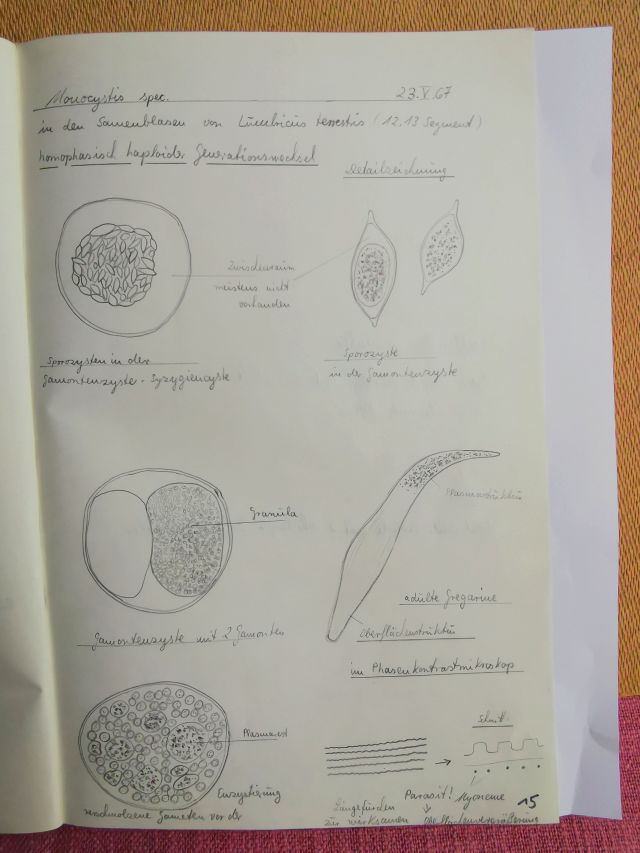 Monocystis spec. 23.V.67
in den Samenblasen von Lumbricus terrestris (12,13 Segment)
homophasisch haploider Generationswechsel
Detailzeichnung
Zwischenraum
meistens nicht
vorhanden
Sporozysten in der
Gamontenzyste = Syzygiencyste
Sporozyste
in der Gamontenzyste
Granula
Plasmastruktur
adulte Gregarine
Oberflächenstruktur
Gamontenzyste mit 2 Gamonten
im Phasenkontrastmikroskop
Schnitt
Plasmarest
Enzystierung
verschmolzene Gameten vor der
Parasit! Myoneme
Längsfurchen
zur wirksamen Oberflächenvergrößerung
15